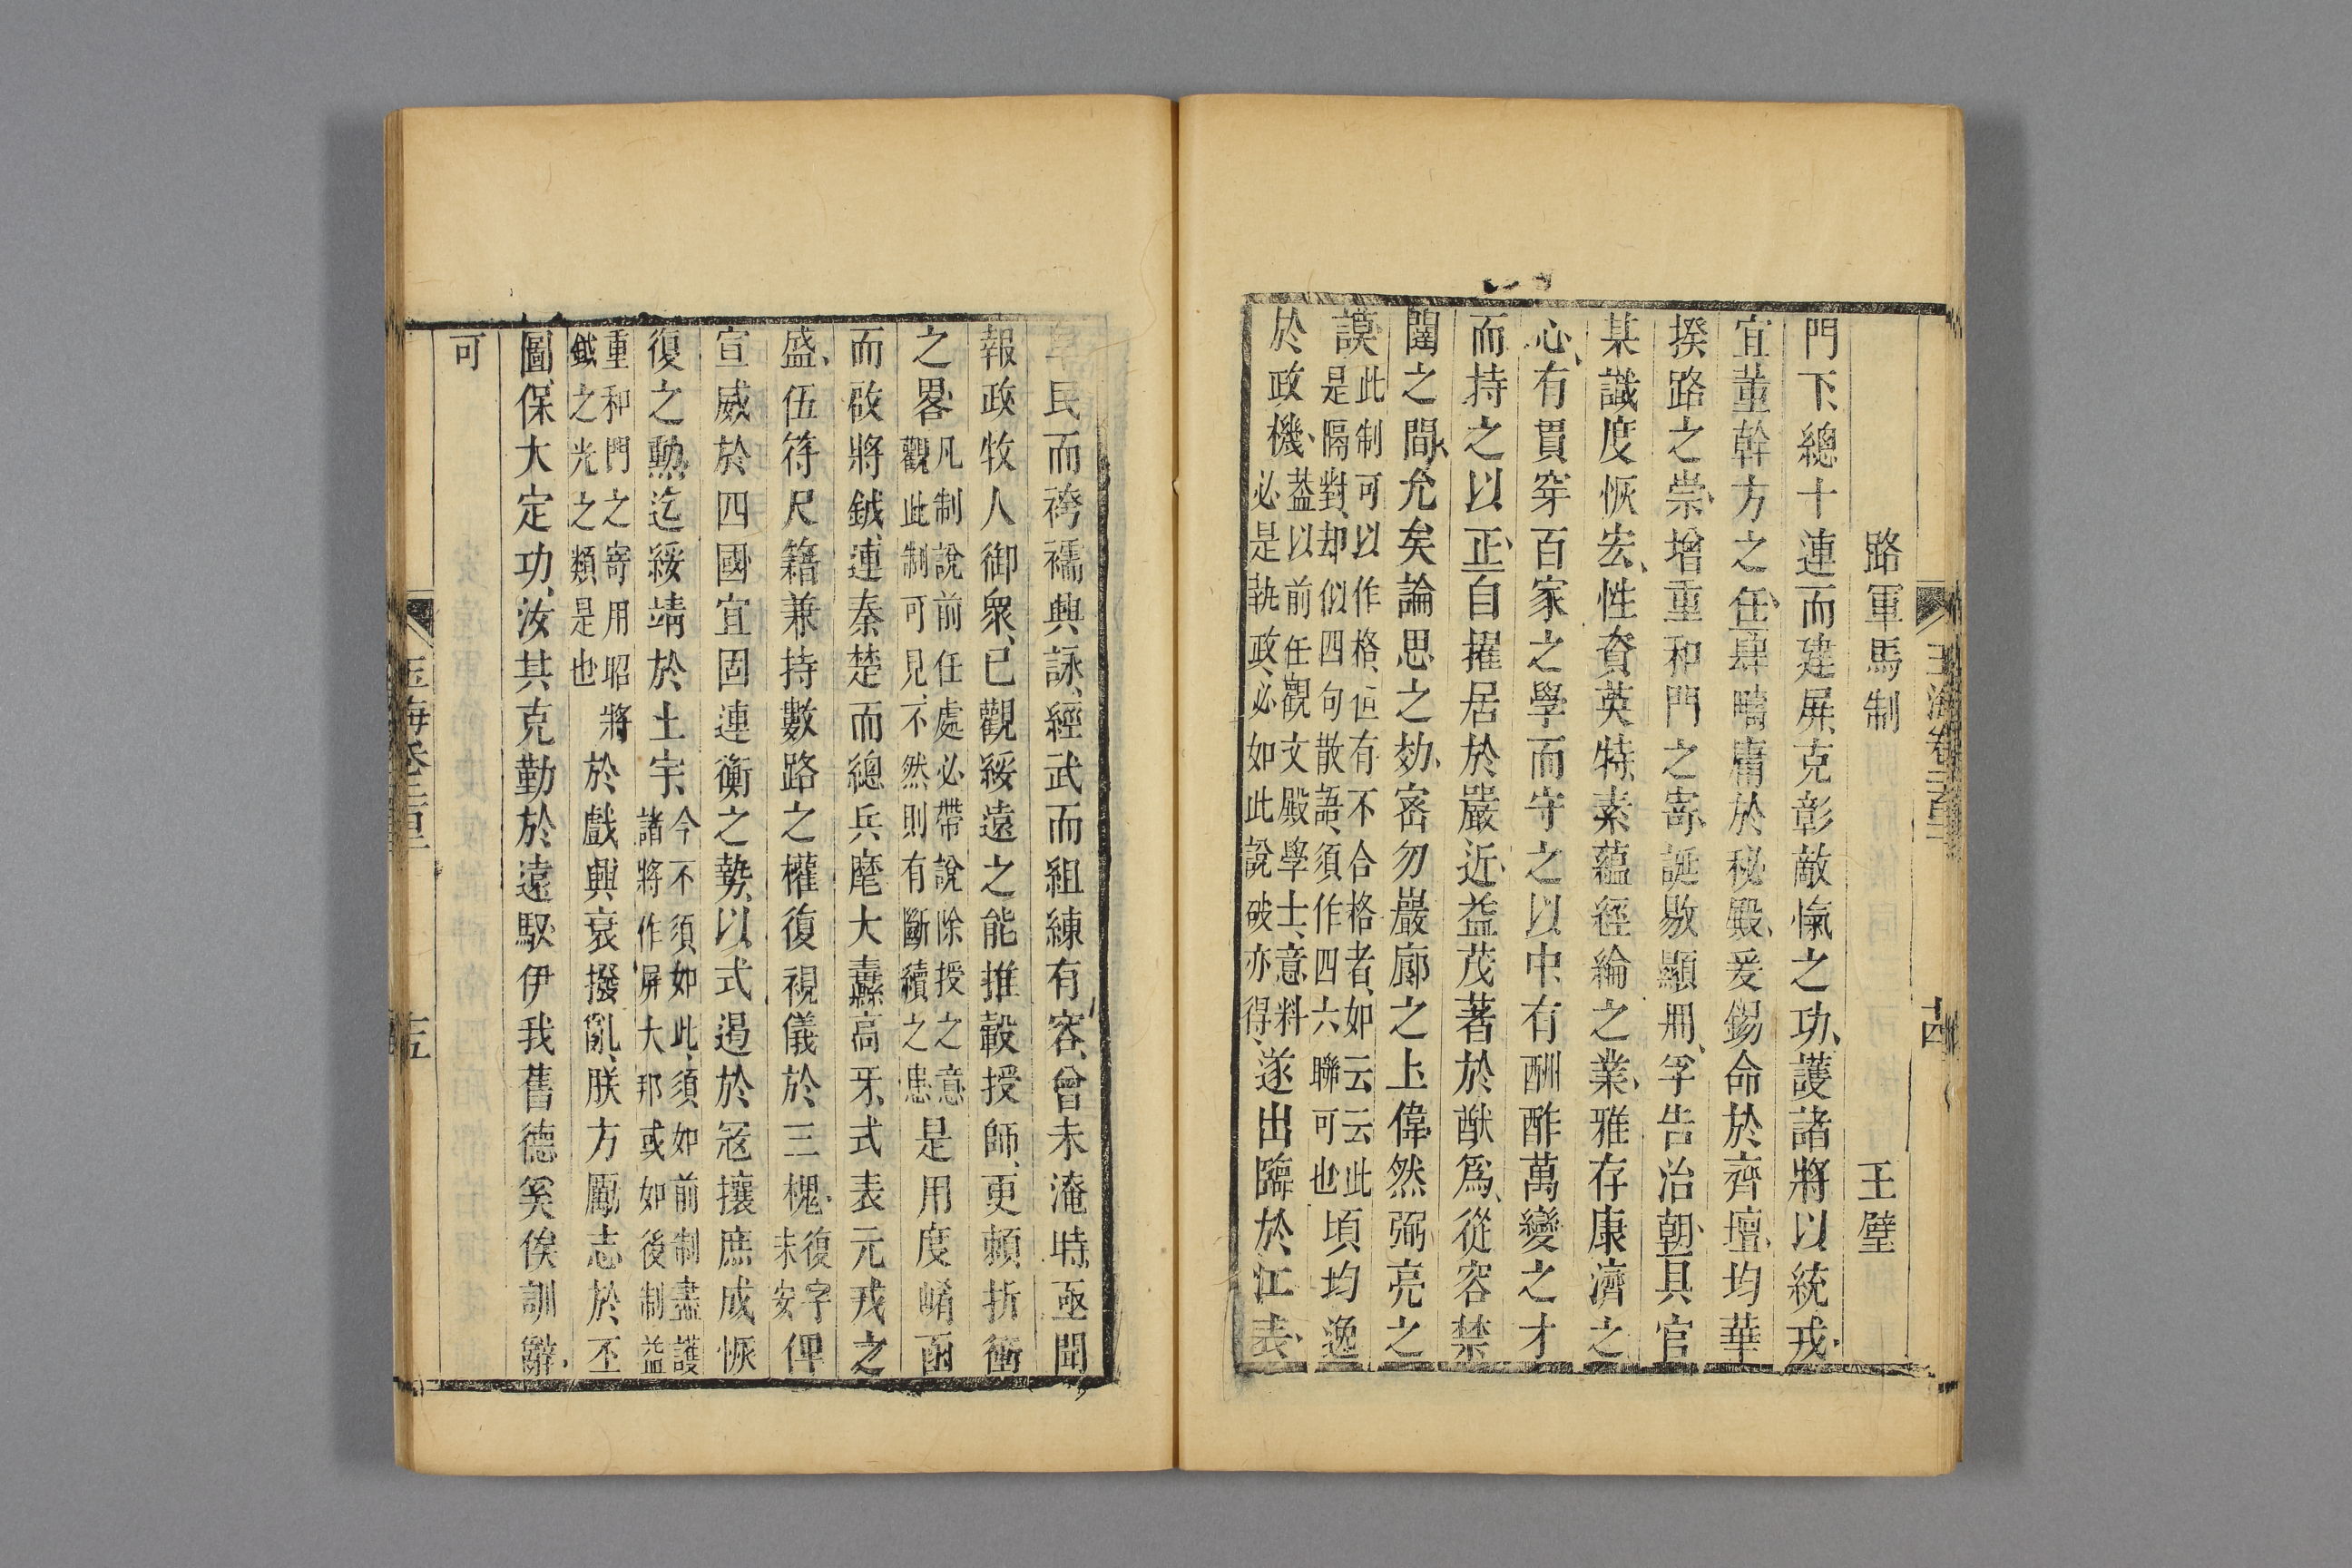 路軍馬制　王璧
門下總十連而建屏克彰敵愾之功護諸將以統戎
宜董幹方之任肆疇庸於秘殿爰錫命於齊壇均華
揆路之崇增重和門之寄誕敭顯冊孚告治朝具官
某識度恢宏性資英特素蘊經綸之業雅存康濟之
心有貫穿百家之學而守之以中有酬酢萬變之才
而持之以正自擢居於嚴近益茂著於猷爲從容禁
闥之間允矣論思之効密勿巖廊之上偉然弼亮之
謨此制可以作格但有不合格者如云云此
是隔對却似四句散語須作四六聯可也頃均逸
於政機葢以前任觀文殿學士意料
必是執政必如此說破亦得遂出臨於江表
民而袴襦興詠經武而組練有容曾未淹時亟聞
報政牧人御衆已觀綏遠之能推轂授師更頼折衝
之畧凡制說前任處必帶說除授之意
觀此制可見不然則有斷續之患是用度崤函
而啟將鉞連秦楚而總兵麾大纛高牙式表元戎之
盛伍符尺籍兼持數路之權復視儀於三槐復字
未安俾
宣威於四國宜固連衡之勢以式遏於寇攘庶成恢
復之勳迄綏靖於土宇今不須如此須如前制盡護
諸將作屏大邦或如後制益
重和門之寄用昭將
鉞之光之類是也於戲興衰撥亂朕方勵志於丕
圖保大定功汝其克勤於遠馭伊我舊德奚俟訓辭
可